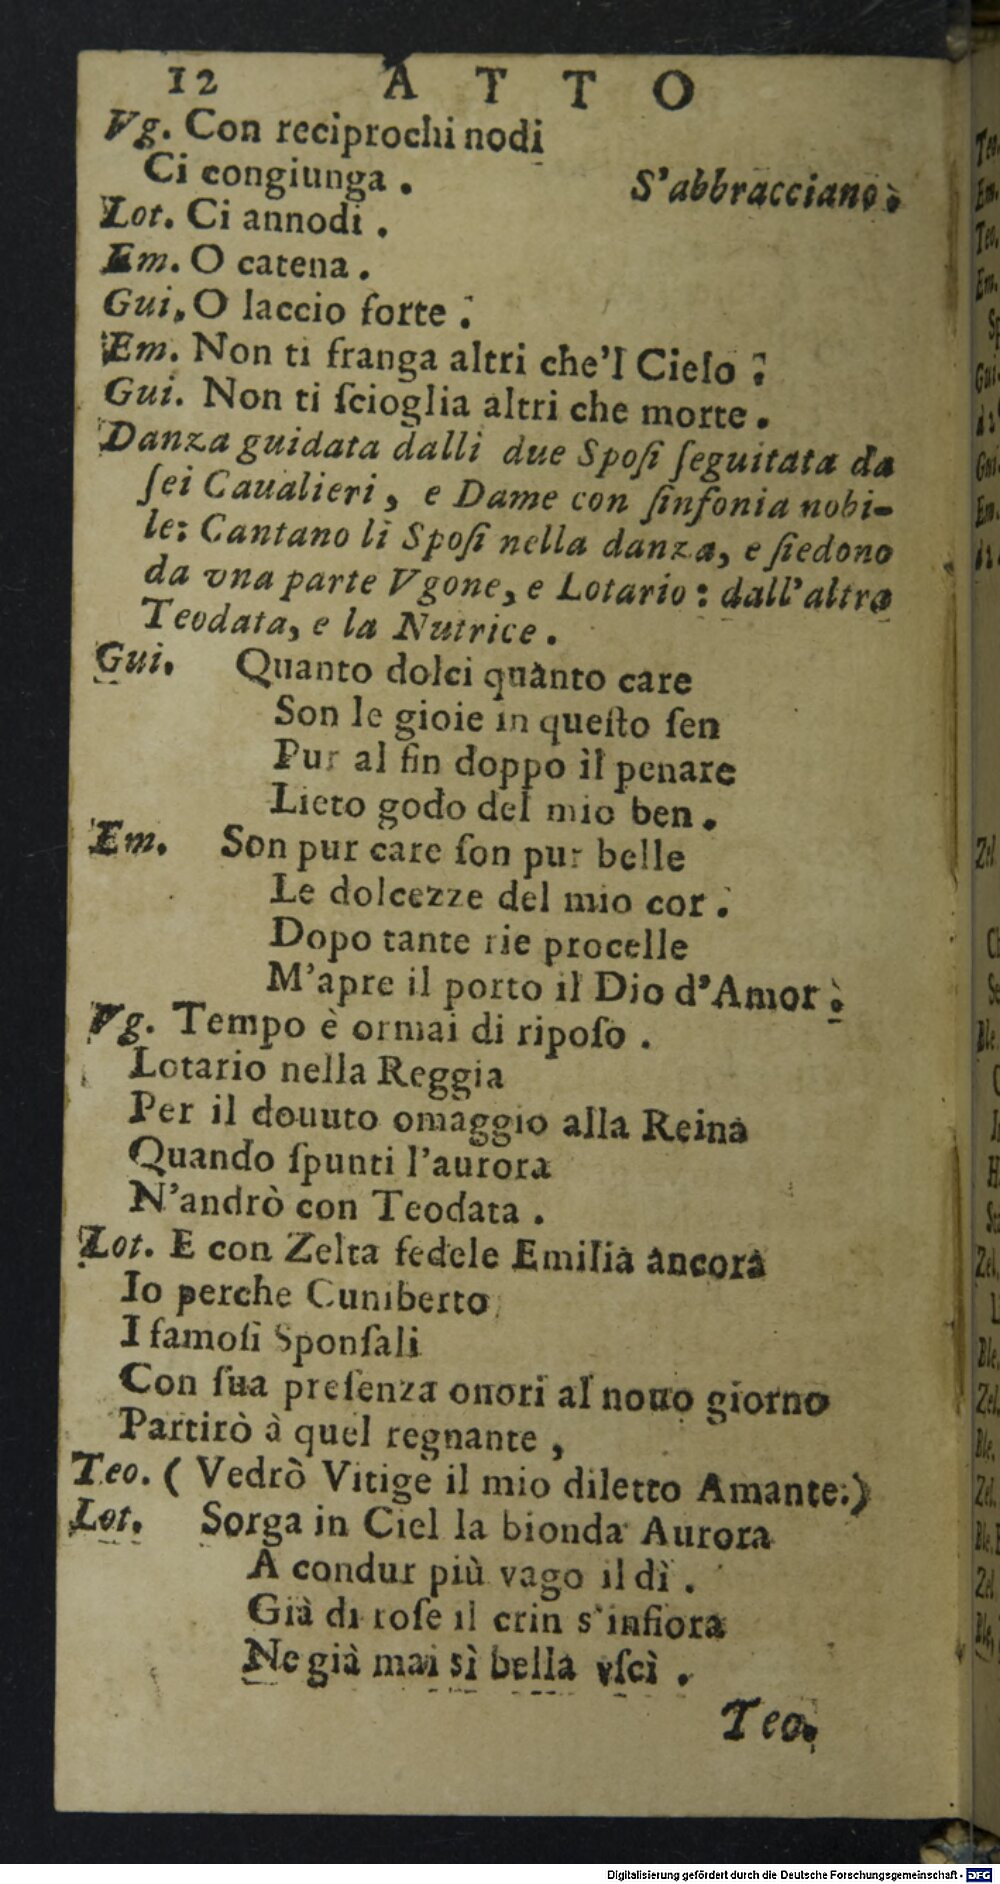 12 ATTO
Vg. Con reciprochi nodi
Ci congiunga. S'abbracciano.
Lot. Ci annodi.
Em. O catena.
Gui. O laccio forte.
Em. Non ti franga altri che'l Cielo.
Gui. Non ti ſcioglia altri che morte.
Danza guidata dalli due Spoſi ſeguitata da
ſei Caualieri, e Dame con ſinfonia nobi-
le: Cantano li Spoſi nella danza, e ſiedono
da vna parte Vgone, e Lotario: dall'altra
Teodata, e la Nutrice.
Gui. Quanto dolci quanto care
Son le gioie in queſto ſen
Pur al fin doppo il penare
Lieto godo del mio ben.
Em. Son pur care ſon pur belle
Le dolcezze del mio cor.
Dopo tante rie procelle
M'apre il porto il Dio d'Amor.
Vg. Tempo è ormai di ripoſo.
Lotario nella Reggia
Per il douuto omaggio alla Reina
Quando ſpunti l'aurora
N'andrò con Teodata.
Lot. E con Zelta fedele Emilia ancora
Io perche Cuniberto
I famoſi Sponſali
Con ſua preſenza onori al nouo giorno
Partirò à quel regnante,
Teo. (Vedrò Vitige il mio diletto Amante.)
Lot. Sorga in Ciel la bionda Aurora
A condur più vago il dì.
Già di roſe il crin s'infiora
Ne già mai sì bella vſcì.
Teo.
Digitalisierung gefördert durch die Deutsche Forschungsgemeinschaft - DFG